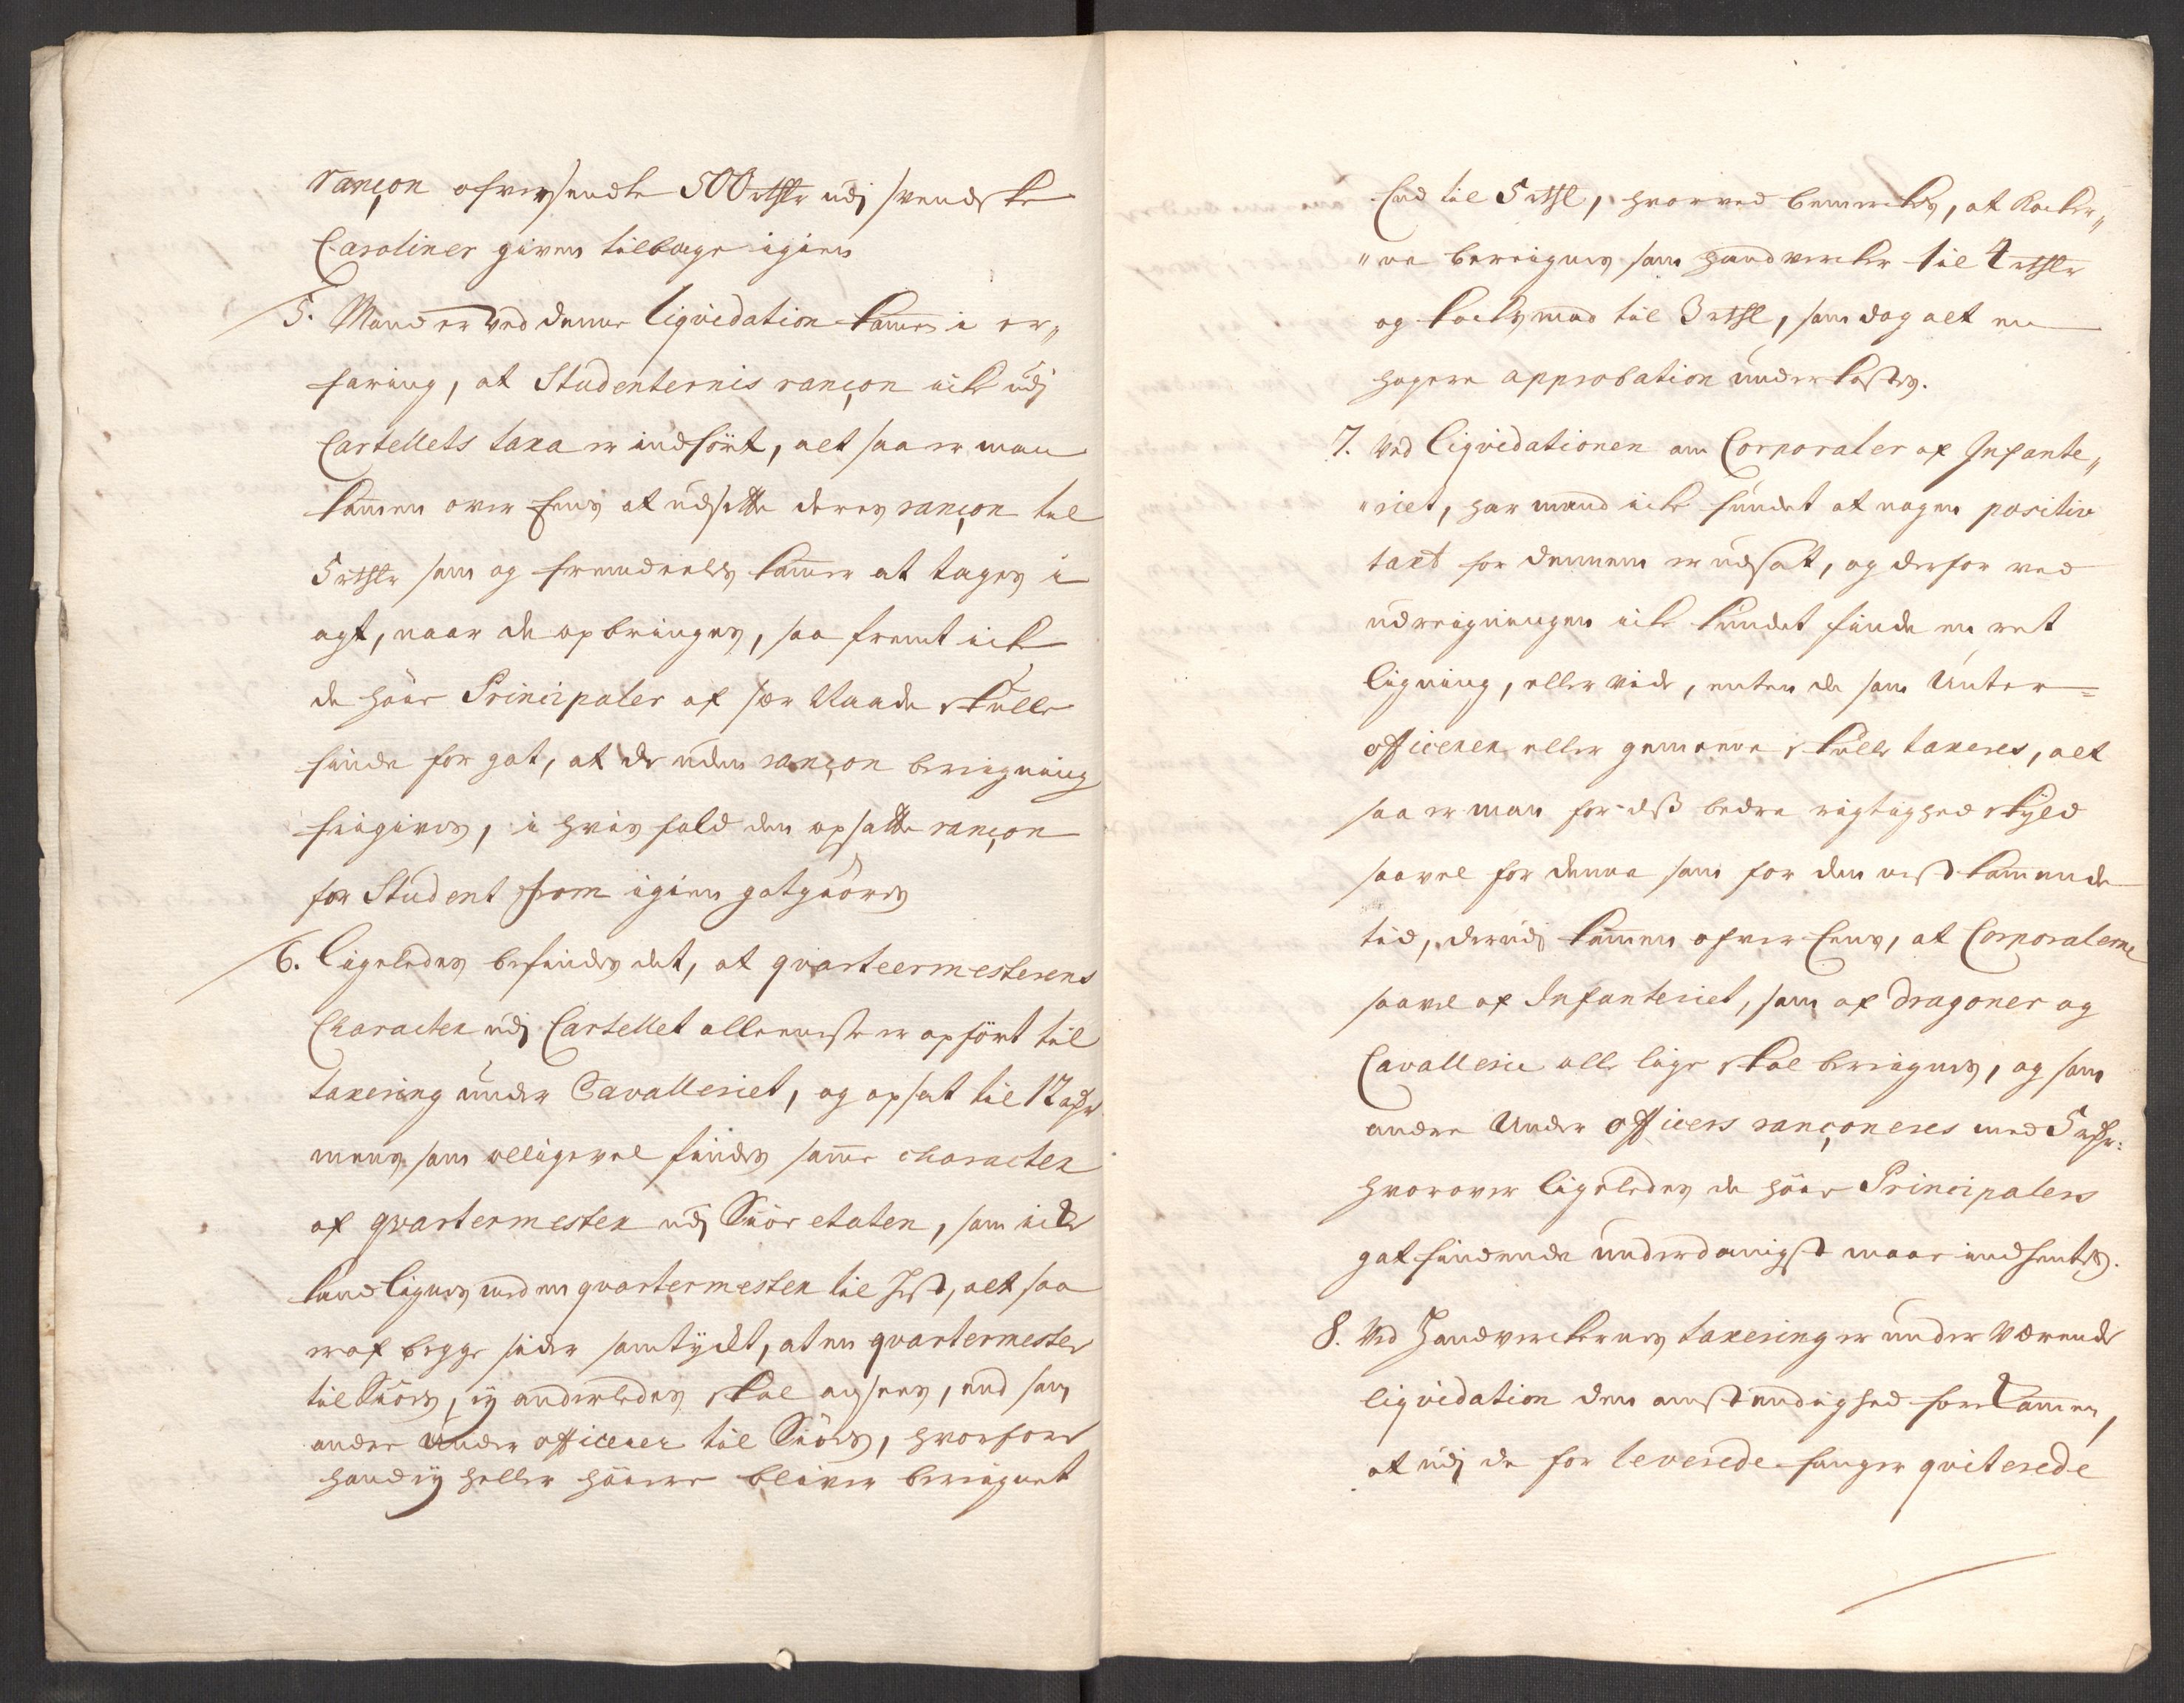 rançon ofversendte 500 rthlr udj svendske
Caroliner given tilbage igien
5. Mand er ved denne liqvidation kommen i er„
faring, at Studenternis rançon icke udj
Cartellets taxa er indfört, alt saa er man
kommen over Eens at udsette deres rançon til
5 rthlr som og fremdeeles kommer at tages i
agt, naar de opbringes, saa fremt icke
de höie Principaler af sær Naade skulle
finde for got, at de uden rançon beregning
frigives, i hvis fald den opsatte rançon
for Student som igien gotgiöres
6. Ligeledes befindes det, at qvarteermesterens
Character udj Cartellet alleeneste er opfört til
taxering under Cavalleriet, og opsat til 12 rthlr
mens som alligevel findes samme character
af qvartermester udj Siöe etaten, som icke
kand lignes med en qvartermester til Hest, alt saa
er af begge sider samtyckt, at en qvartermester
til Siöes, ey anderledes skal ansees, end som
andre Under officerer til Siöes, hvorfore
hand ey heller höiere bliver beregnet
End til 5 rthl, hvorved bemerckes, at Kocker„
„ne beregnes som handvercker til 4 rthlr
og kocksmad til 3 rthl, som dog alt en
hogere approbation underkastes.
7. Ved Liqvidationen om Corporaler af Infante„
„riet, har mand icke fundet at nogen positiv
taxt for dennem er udsat, og derfor ved
udregningen icke kundet finde en ret
ligning, eller vide, enten de som Unter=
officerer eller gemeene skulle taxeres, alt
saa er man for dess bedre rigtighed skyld
saavel for denne som for den nest kommende
tid, derudj kommen ofver Eens, at Corporalerne
saavel af Infanteriet, som af Dragoner og
Cavallerie alle lige skal beregnes, og som
andre Under officers rançoneres med 5 rthr:
hvorover ligeledes de höie Principalers
gotfindende underdanigst maae indhentes.
8. Ved Handverckernes taxering er under værende
liqvidation den omstendighed forekommen,
at udj de for leverede fanger qviterede